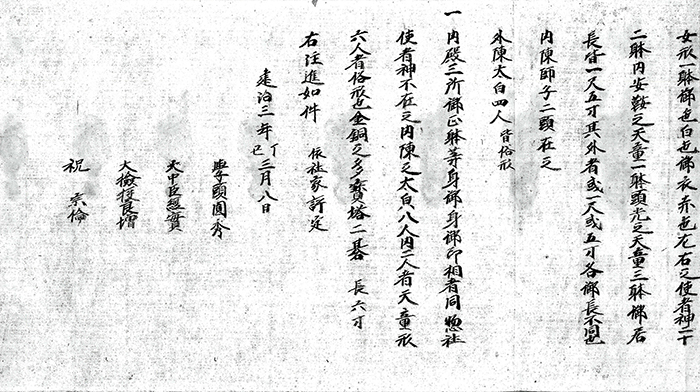 女形一躰御色白也御衣赤色左右之使者神二十
二躰内安鞍之天童一躰頭光之天童三躰御居
長皆一尺五寸其外者或一尺或五寸各御長不同也
内陳師子二頭在之
外陳太白四人 皆俗形
一 内殿三所御正躰等身御身御印相者同惣社
使者神不在之内陳之太白八人内二人者天童形
六人者俗形也金銅之多寳塔二基 長六寸
右注進如件 依社家評定
建治三年丁丑三月八日
學頭圓秀
大中臣經實
大檢挍良増
祝 宗倫